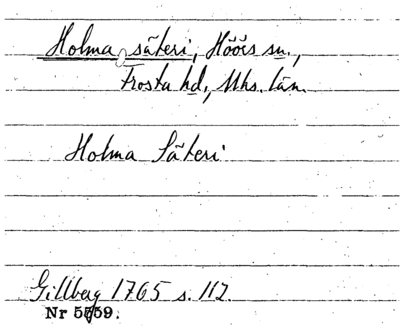 Holma säteri, Höörs sn.,
Frosta hd., Mhs. län.
Holma Säteri
Gillberg 1765 s. 112.
Nr 5759.